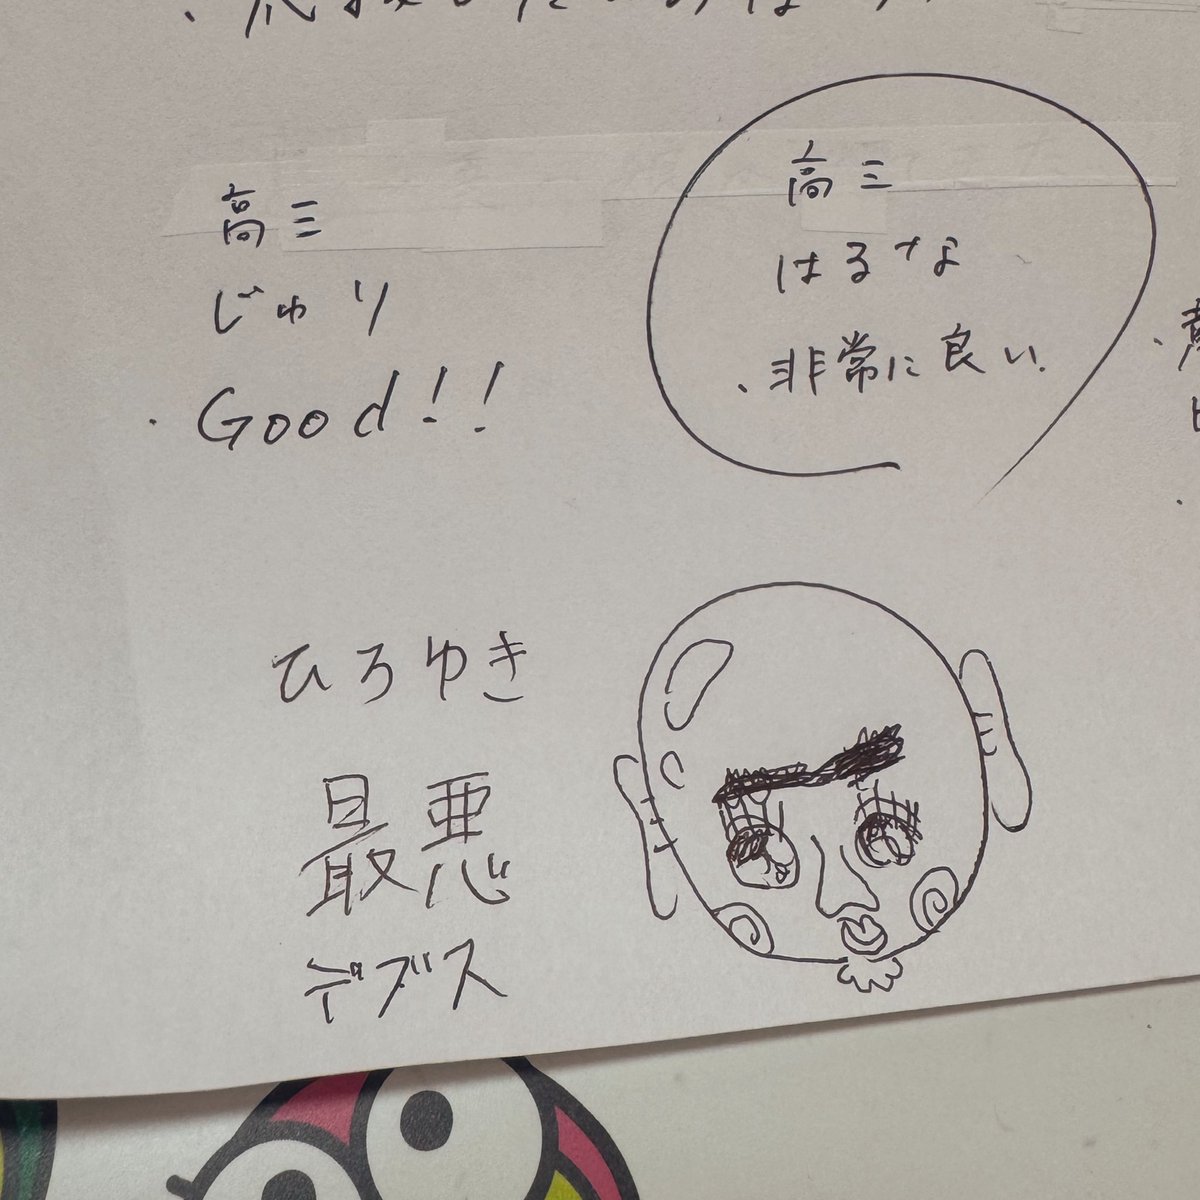 高三
じゅり
・Good!!
高三
はるな
・非常に良い.
ひろゆき
最悪
デブス